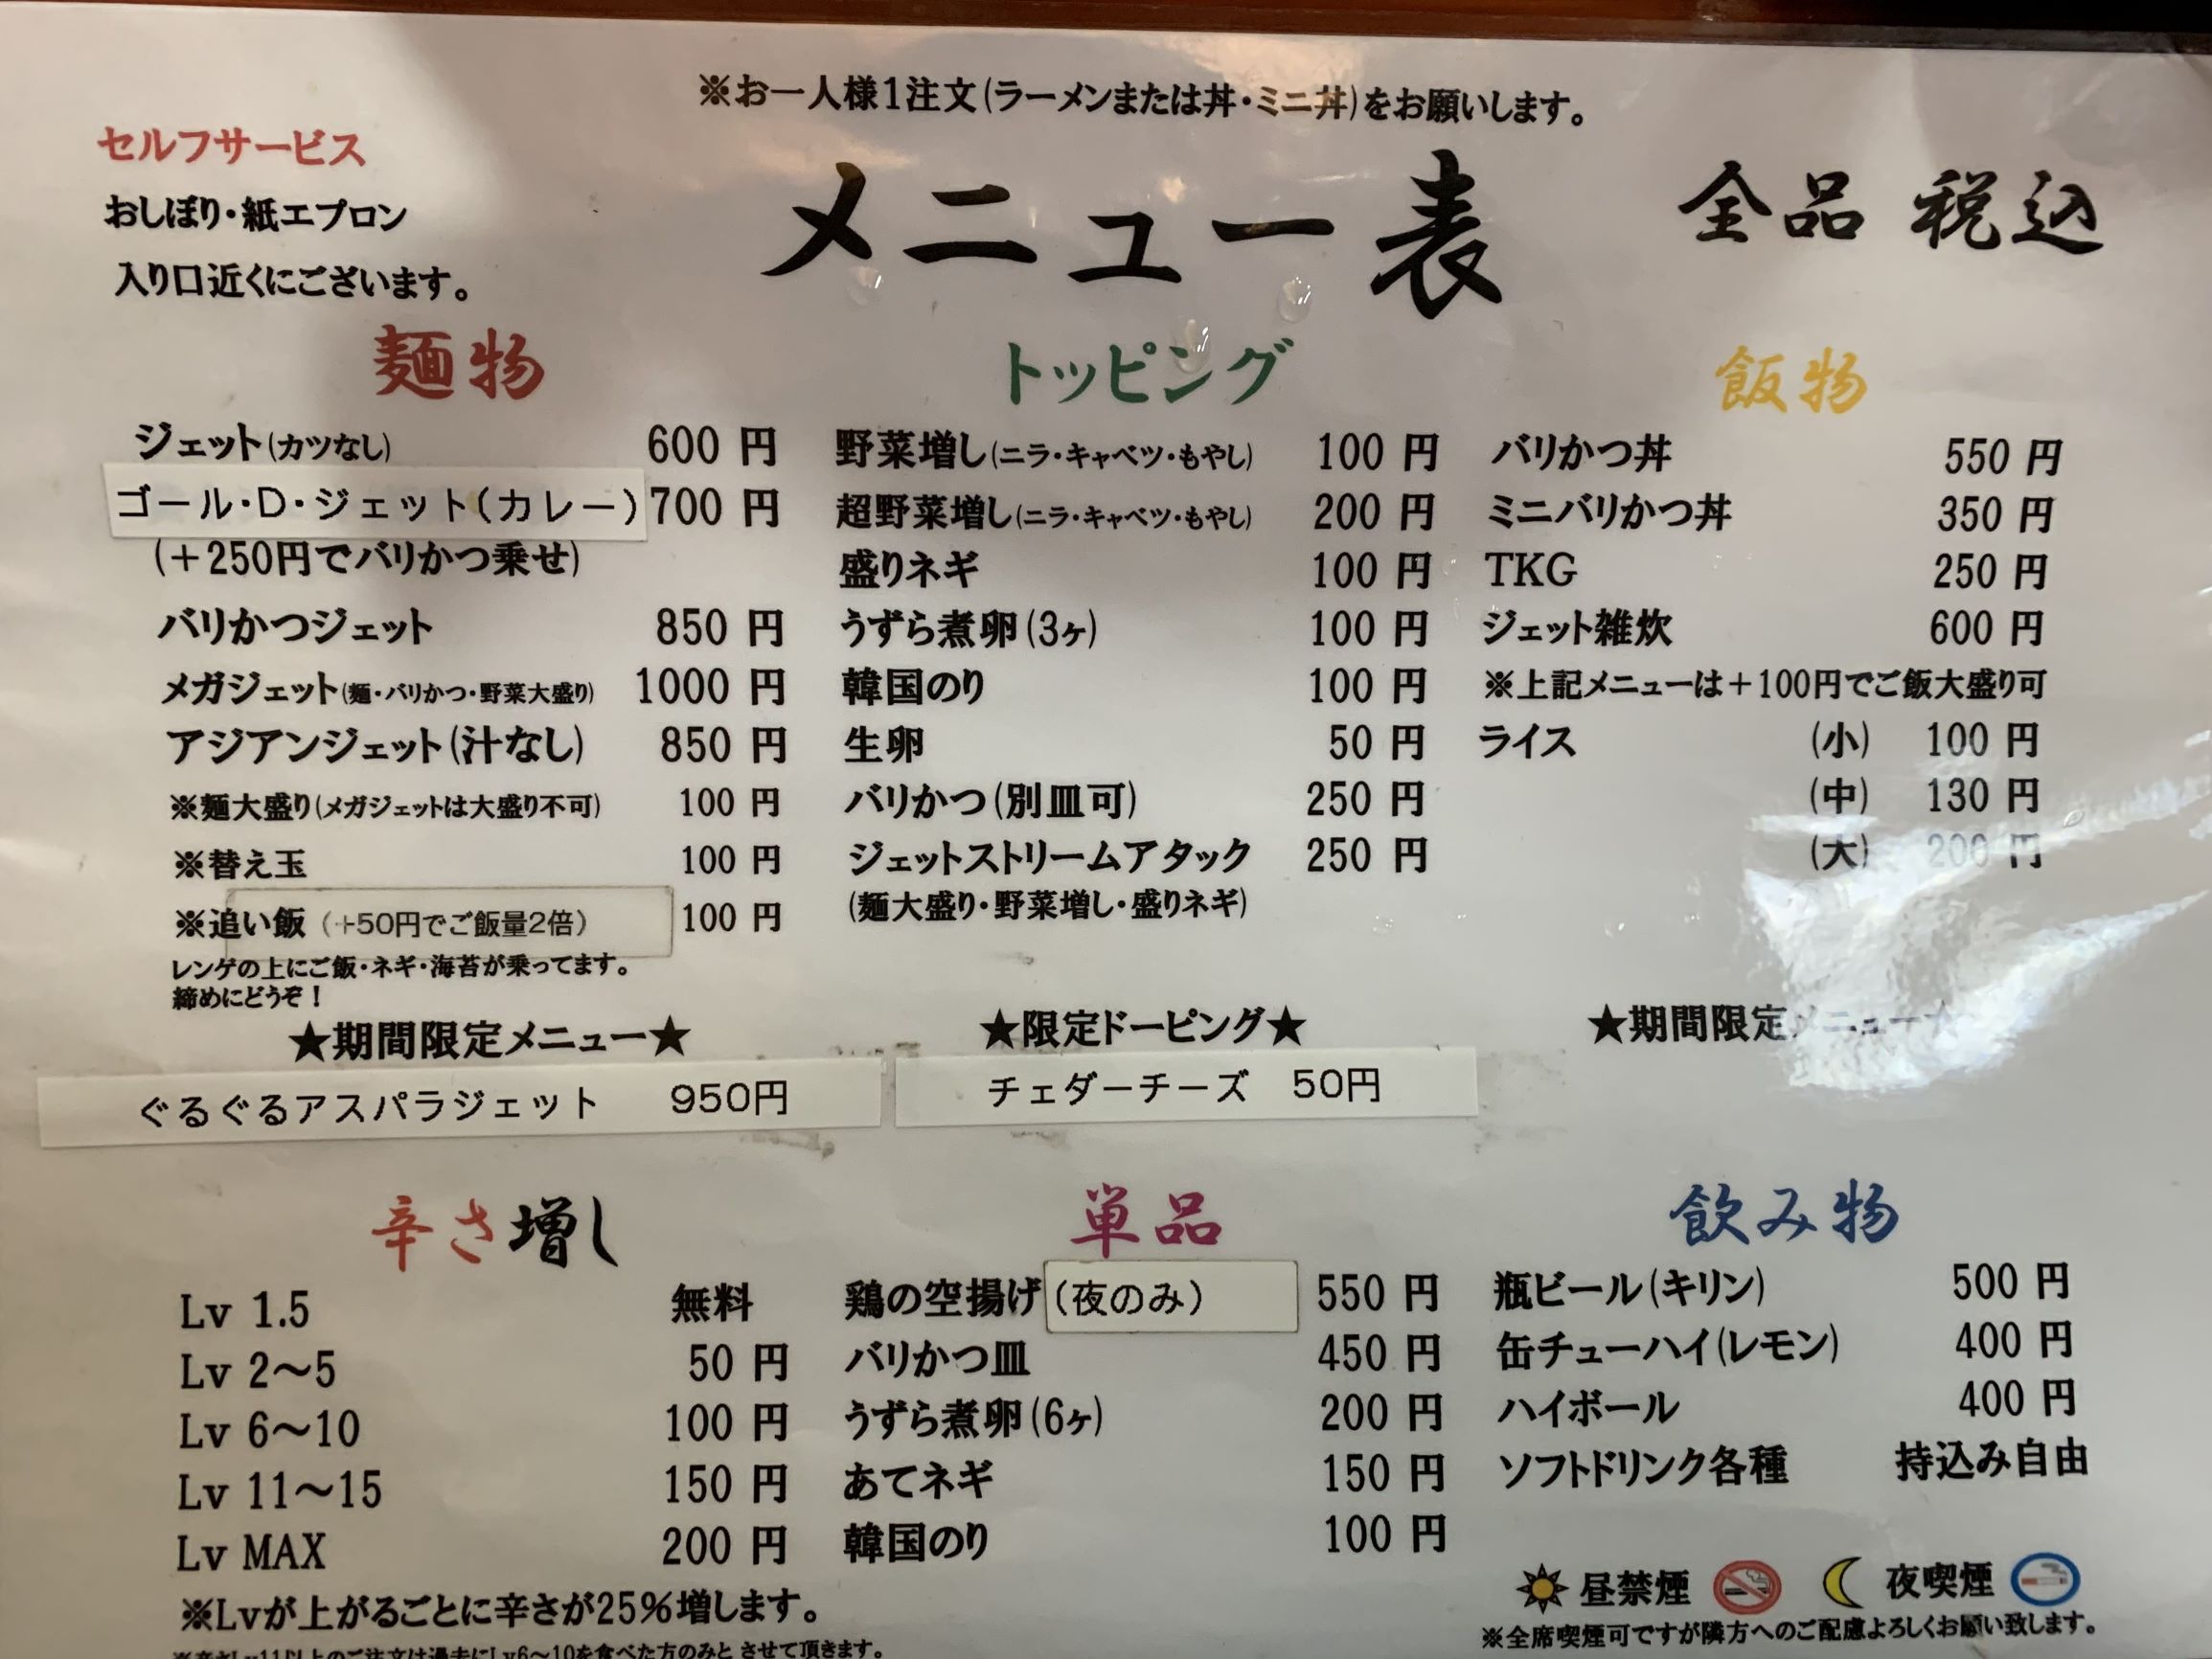 ※お一人様1注文(ラーメンまたは丼・ミニ丼)をお願いします。
セルフサービス
おしぼり・紙エプロン
入り口近くにございます。
メニュー表
全品 税込
麺物
ジェット(カツなし) 600 円
ゴール・D・ジェット(カレー) 700 円
(+250円でバリかつ乗せ)
バリかつジェット 850 円
メガジェット(麺・バリかつ・野菜大盛り) 1000 円
アジアンジェット(汁なし) 850 円
※麺大盛り(メガジェットは大盛り不可) 100 円
※替え玉 100 円
※追い飯 (+50円でご飯量2倍) 100 円
レンゲの上にご飯・ネギ・海苔が乗ってます。
締めにどうぞ!
★期間限定メニュー★
ぐるぐるアスパラジェット 950円
トッピング
野菜増し(ニラ・キャベツ・もやし) 100 円
超野菜増し(ニラ・キャベツ・もやし) 200 円
盛りネギ 100 円
うずら煮卵(3ヶ) 100 円
韓国のり 100 円
生卵 50 円
バリかつ(別皿可) 250 円
ジェットストリームアタック 250 円
(麺大盛り・野菜増し・盛りネギ)
★限定ドーピング★
チェダーチーズ 50円
飯物
バリかつ丼 550 円
ミニバリかつ丼 350 円
TKG 250 円
ジェット雑炊 600 円
※上記メニューは+100円でご飯大盛り可
ライス (小) 100 円
(中) 130 円
(大) 200 円
★期間限定メニュー★
辛さ増し
Lv 1.5 無料
Lv 2～5 50 円
Lv 6～10 100 円
Lv 11～15 150 円
Lv MAX 200 円
※Lvが上がるごとに辛さが25%増します。
※辛さLv11以上のご注文は過去にLv6～10を食べた方のみと させて頂きます。
単品
鶏の空揚げ (夜のみ) 550 円
バリかつ皿 450 円
うずら煮卵(6ヶ) 200 円
あてネギ 150 円
韓国のり 100 円
飲み物
瓶ビール(キリン) 500 円
缶チューハイ(レモン) 400 円
ハイボール 400 円
ソフトドリンク各種 持込み自由
昼禁煙 夜喫煙
※全席喫煙可ですが隣方へのご配慮よろしくお願い致します。